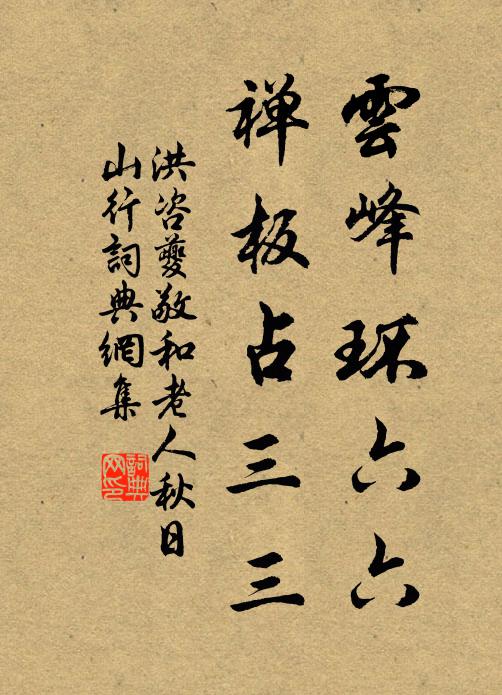 雲峰环六六
禅板占三三
洪咨夔敬和老人秋日
山行詞典網集
詞典网印